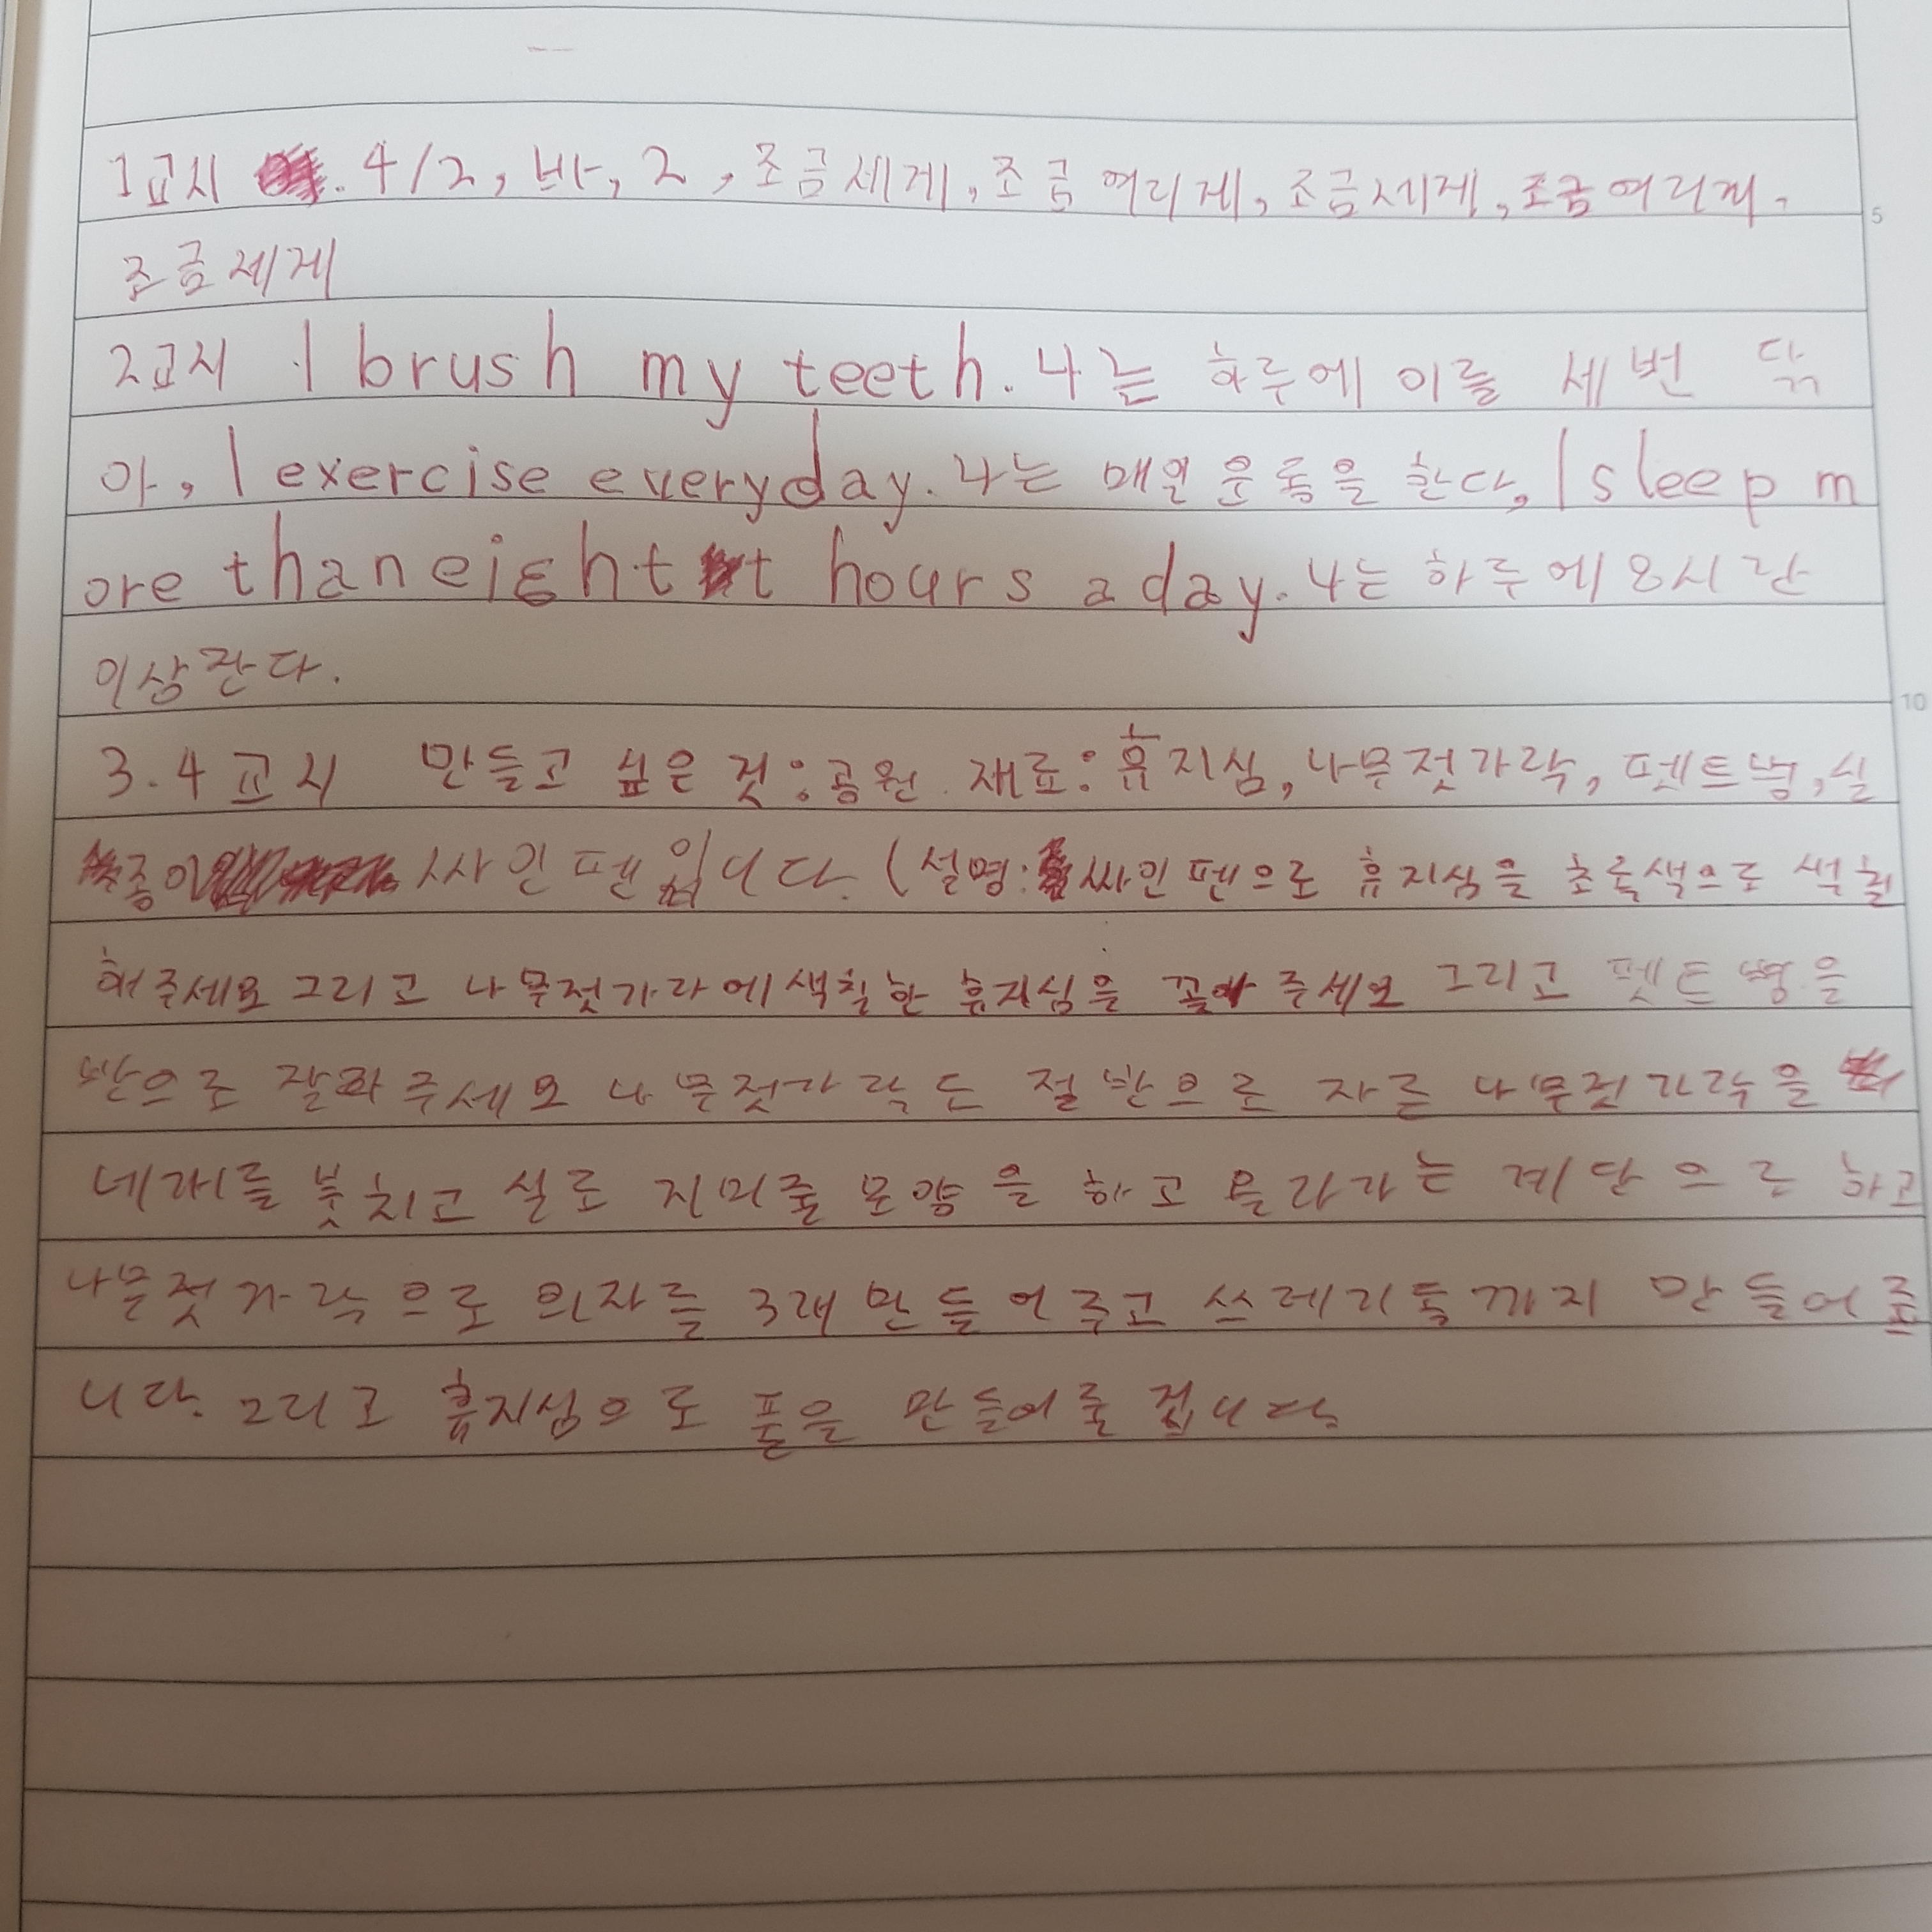 1교시 4/2, 바, 2, 조금세게, 조금 여리게, 조금세게, 조금여리게,
조금세게
2교시 I brush my teeth. 나는 하루에 이를 세 번 닦
아, I exercise everyday. 나는 매일 운동을 한다, I sleep m
ore than eight hours a day. 나는 하루에 8시간
이상 잔다.
3.4교시 만들고 싶은 것:공원 재료: 휴지심, 나무젓가락, 펫트병, 실
종이 싸인펜입니다. (설명: 싸인펜으로 휴지심을 초록색으로 색칠
해주세요 그리고 나무젓가라에 색칠한 휴지심을 꼽아 주세요 그리고 펫트병을
반으로 잘라주세요 나무젓가락도 절반으로 자른 나무젓가락을
네개를 붓치고 실로 지미줄 모양을 하고 올라가는 계단으로 하고
나무젓가락으로 의자를 3개 만들어주고 쓰레기통까지 만들어줍
니다. 그리고 휴지심으로 풀을 만들어줄 겁니다